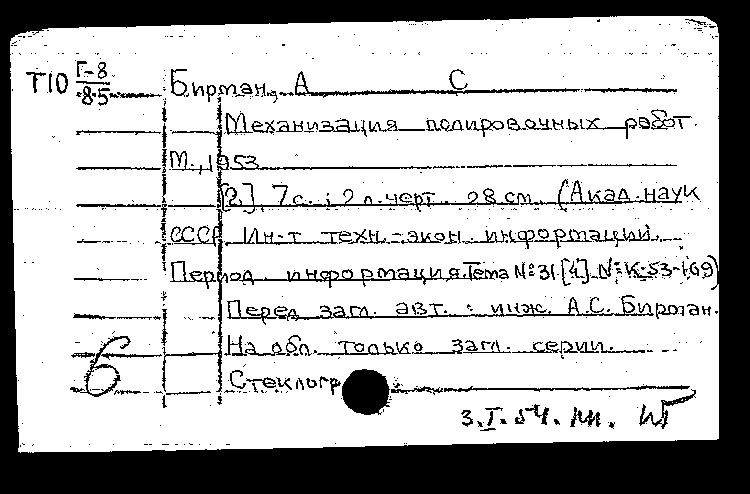 Т10 Г-8
8.5
Бирман, А С
Механизация полировочных работ.
М., 1953
[2], 7 с. ; 2 л. черт. 28 см. (Акад. наук
СССР. Ин-т техн.-экон. информации.
Период. информация. Тема № 31 [4]. № К-53-169)
Перед загл. авт. : инж. А.С. Бирман.
На обл. только загл. серии.
Стеклогр.
6
3.I.54.